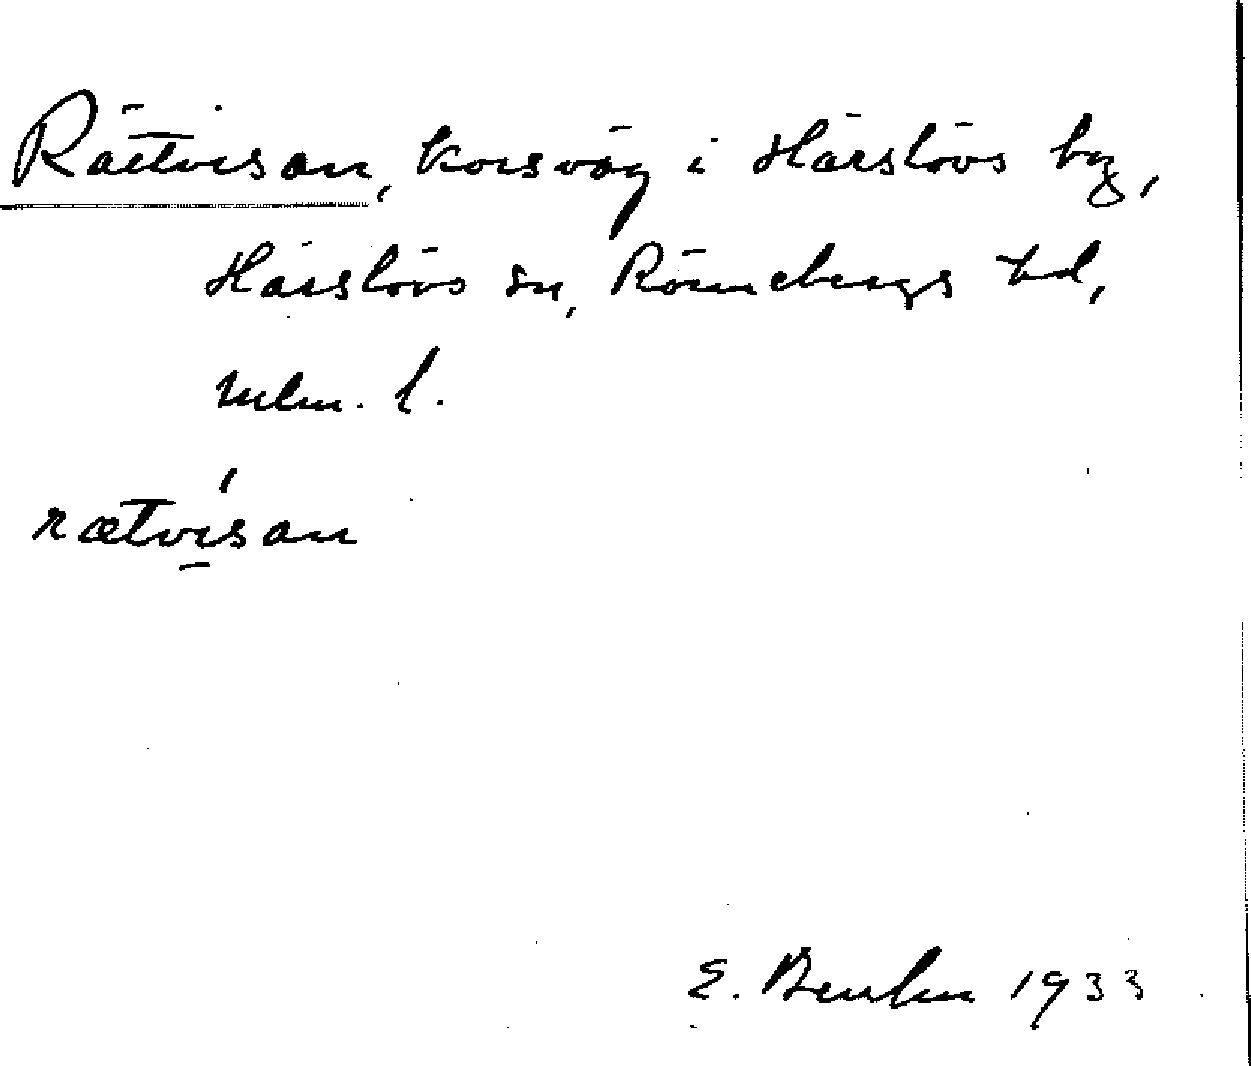 Rättvisan, korsväg i Härslövs by,
Härslövs sn, Rönnebergs hd,
Mlm. l.
rætvisan
E. 1933